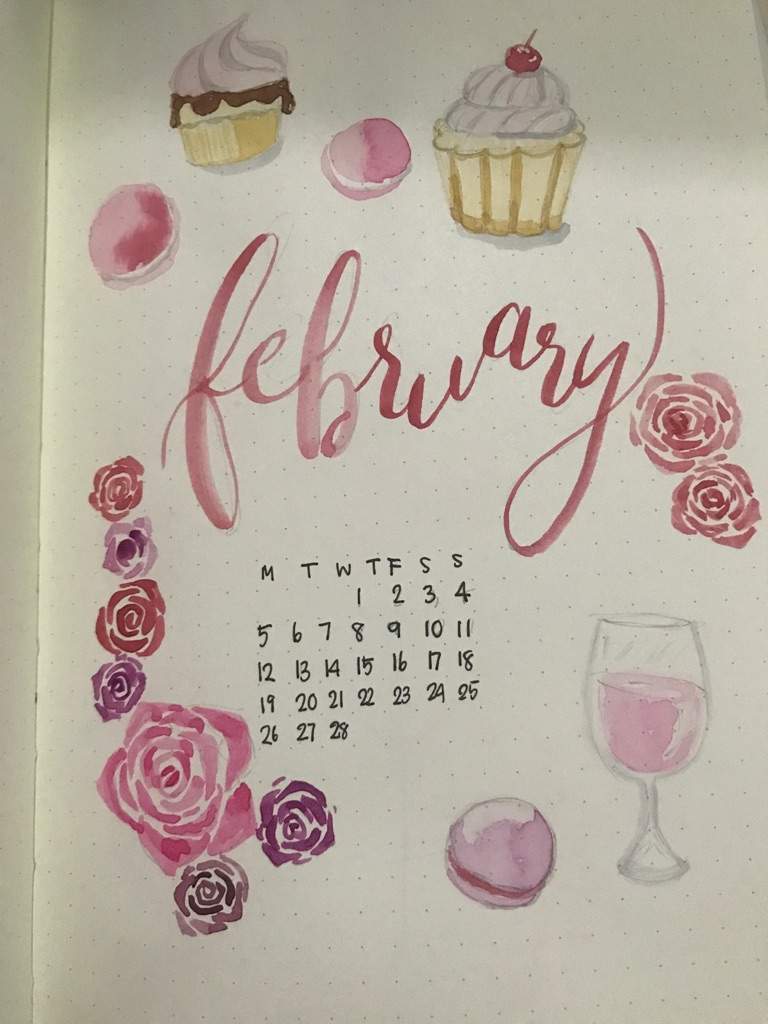 february
M T W T F S S
1 2 3 4
5 6 7 8 9 10 11
12 13 14 15 16 17 18
19 20 21 22 23 24 25
26 27 28